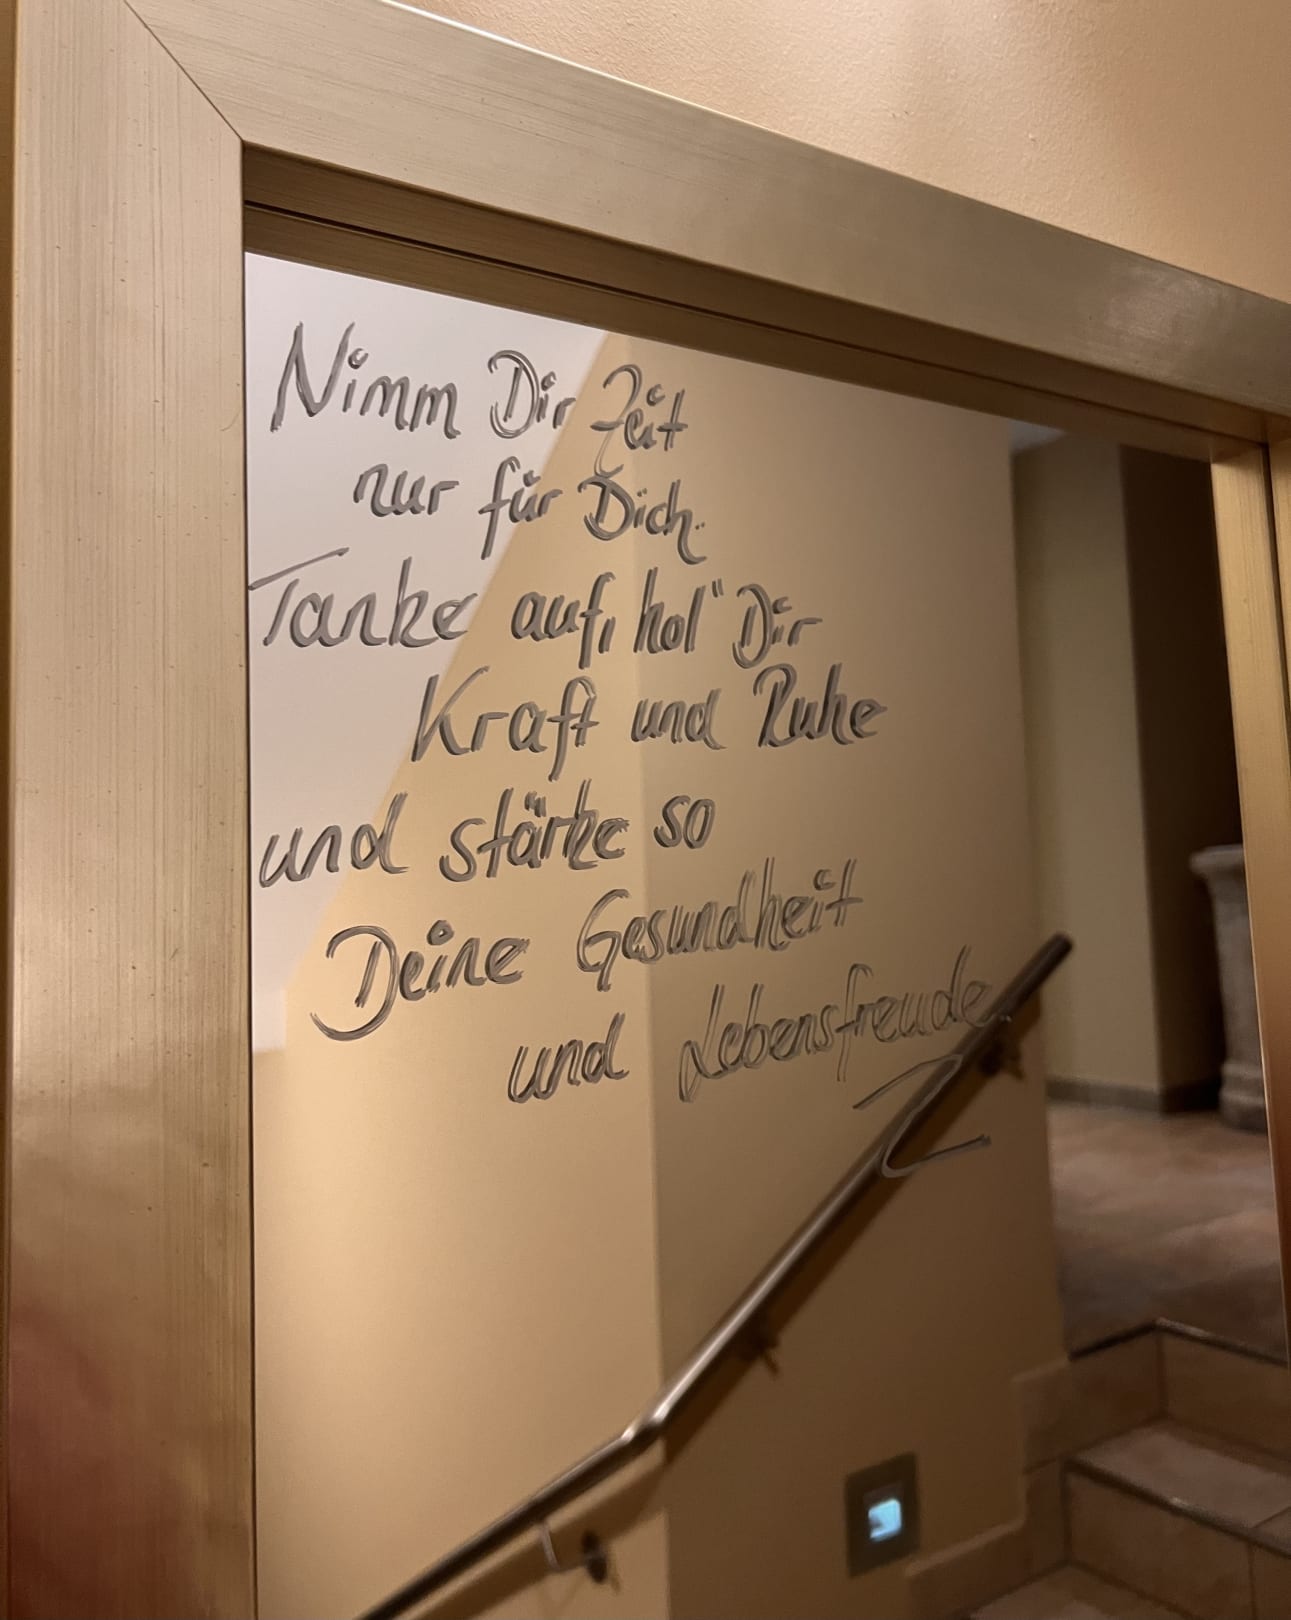 Nimm Dir Zeit
nur für Dich..
Tanke auf, hol" Dir
Kraft und Ruhe
und stärke so
Deine Gesundheit
und Lebensfreude..